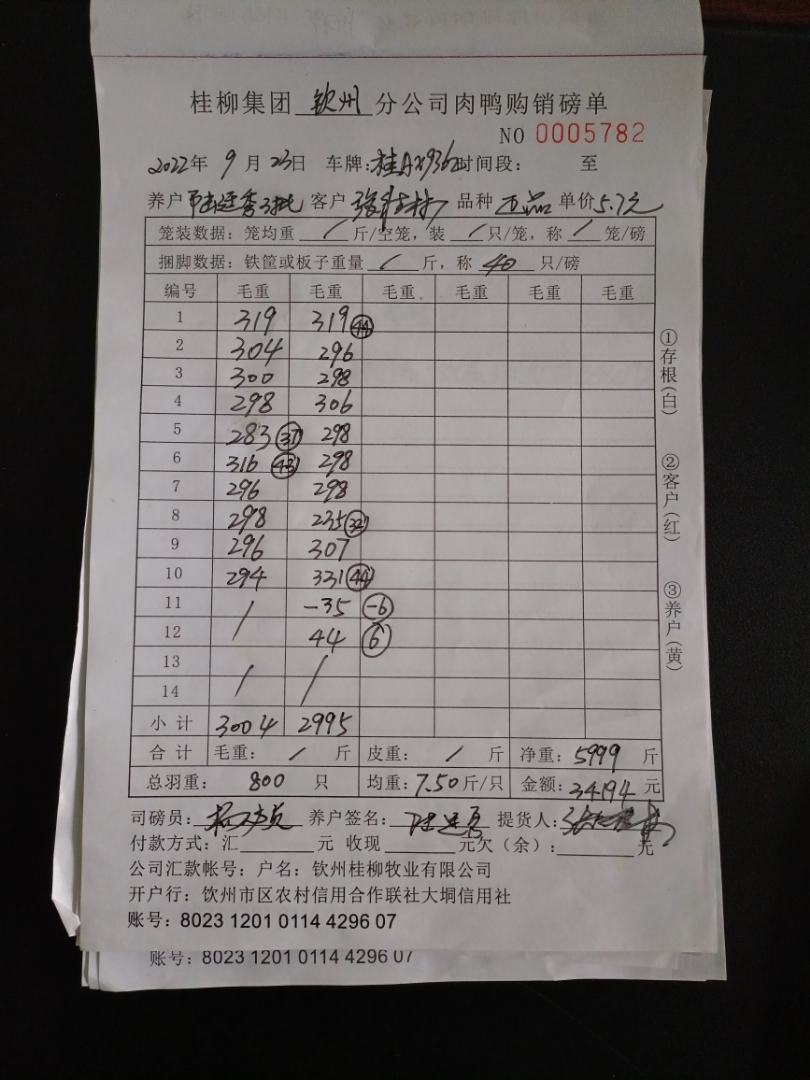 桂柳集团 钦州 分公司肉鸭购销磅单
NO 0005782
2022年 9 月 23日 车牌: 时间段: 至
养户 客户 品种 正品 单价 5.7元
笼装数据: 笼均重 / 斤/空笼, 装 / 只/笼, 称 / 笼/磅
捆脚数据: 铁筐或板子重量 / 斤, 称 40 只/磅
编号 毛重 毛重 毛重 毛重 毛重 毛重
1 319 319 44
2 304 296
3 300 298
4 298 306
5 283 37 298
6 316 43 298
7 296 298
8 298 235 32
9 296 307
10 294 331 44
11 / -35 -6
12 44 6
13 / /
14
小计 3004 2995
合计 毛重: / 斤 皮重: / 斤 净重: 5999 斤
总羽重: 800 只 均重: 7.50 斤/只 金额: 34194 元
司磅员: 养户签名: 提货人:
付款方式: 汇 元 收现 元欠(余): 元
公司汇款帐号: 户名: 钦州桂柳牧业有限公司
开户行: 钦州市区农村信用合作联社大垌信用社
账号: 8023 1201 0114 4296 07
账号: 8023 1201 0114 4296 07
①存根(白)
②客户(红)
③养户(黄)